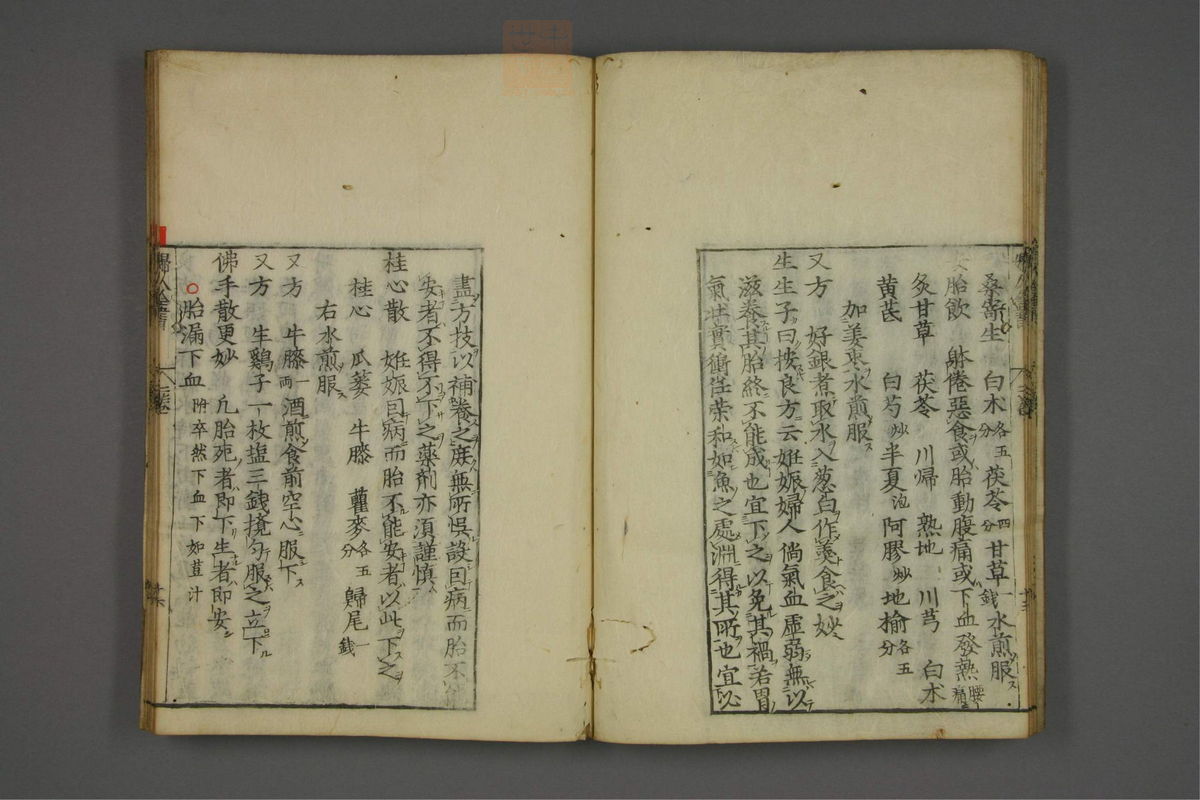 桑寄生 白朮各五分 茯苓四分 甘草一錢 水煎服
安胎飲 躰倦惡食或胎動腹痛或下血發熱腰痛
炙甘草 茯苓 川帰 熟地 川芎 白朮
黄芪 白芍炒 半夏泡 阿膠炒 地榆各五分
加姜棗水煎服
又方 好銀煮取水入葱白作羹食之妙
生生子曰按良方云姙娠婦人倘氣血虛弱無以
滋養其胎終不能成也宜下之以免其禍若胃
氣壯實衝任荣和如魚之處淵得其所也宜必
盡方技以補養之庶無所悞設囙病而胎不能
安者不得不下之藥劑亦須謹慎
桂心散 姙娠囙病而胎不能安者以此下之
桂心 瓜蔞 牛膝 瞿麥各五分 歸尾一錢
右水煎服
又方 牛膝一両 酒煎食前空心服下
又方 生鷄子一枚塩三錢攪勻服之立下
佛手散更妙 凢胎死者即下生者即安
胎漏下血 附卒然下血下如荳汁